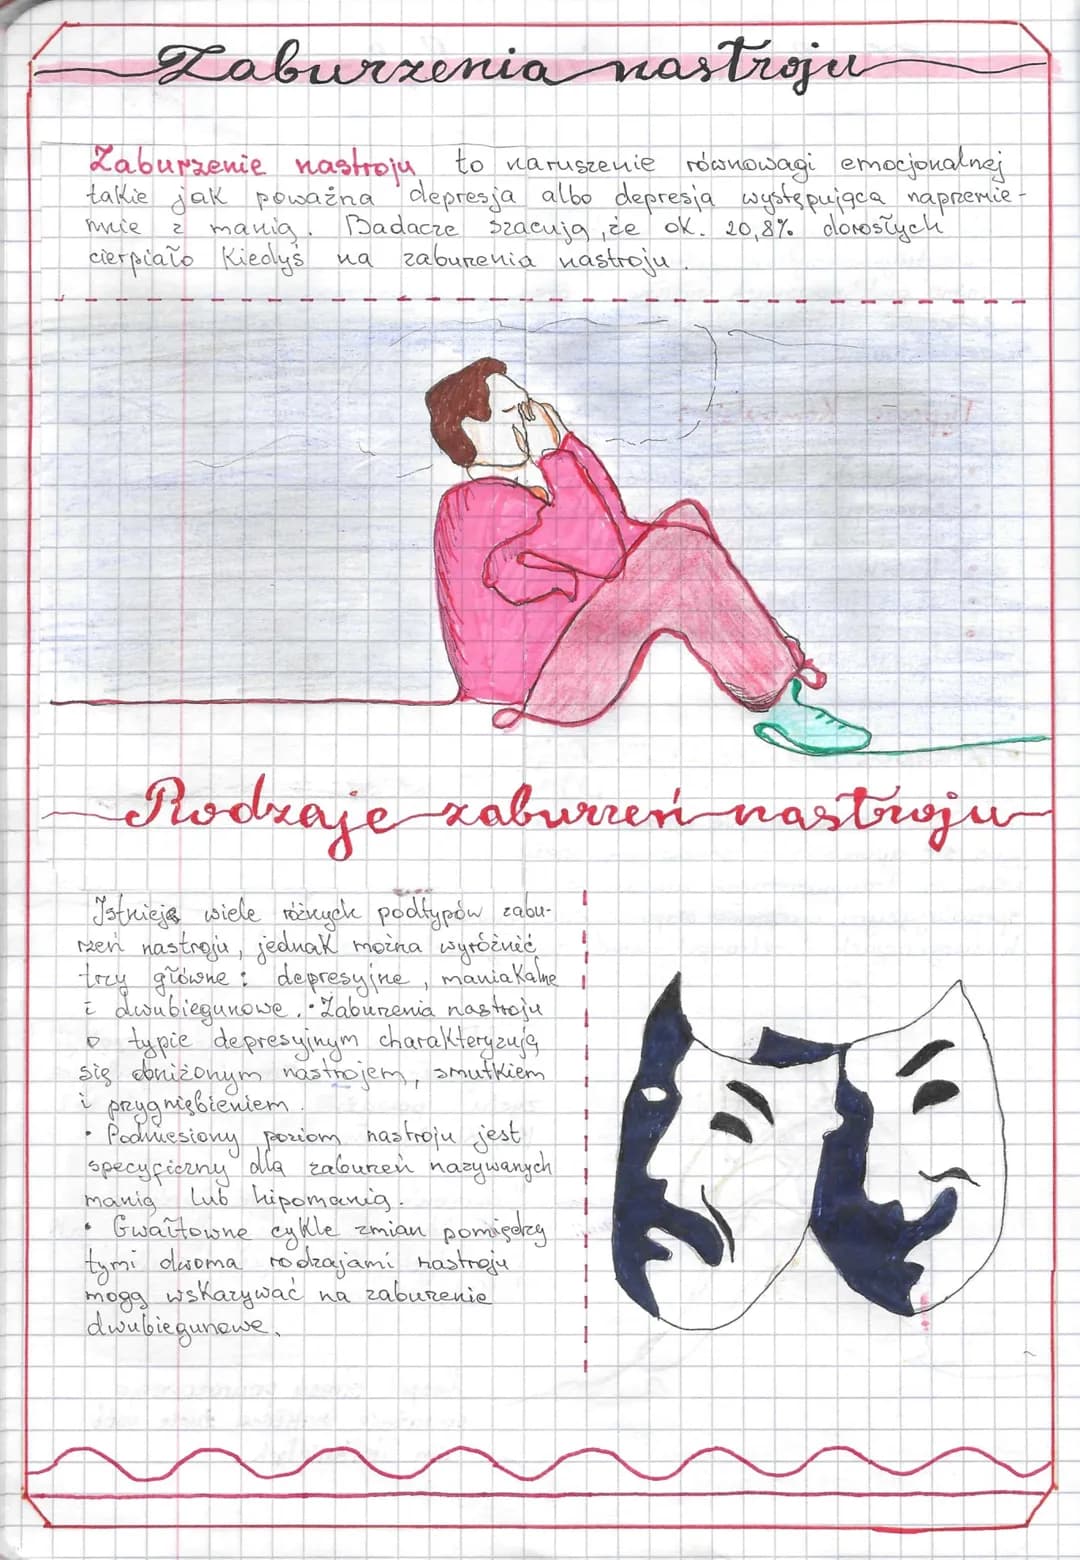 Zaburzenia nastroju
Zaburzenie nastroju to naruszenie równowagi emocjonalnej
takie jak poważna depresja albo depresja występująca naprzemie-
nnie z manią. Badacze szacują, że ok. 20,8% dorosłych
cierpiało kiedyś na zaburzenia nastroju.
Rodzaje zaburzeń nastroju
Istnieją wiele różnych podtypów zabu-
rzeń nastroju, jednak można wyróżnić
trzy główne: depresyjne, maniakalne
i dwubiegunowe. • Zaburzenia nastroju
o typie depresyjnym charakteryzują
się obniżonym nastrojem, smutkiem
i przygnębieniem.
• Podniesiony poziom nastroju jest
specyficzny dla zaburzeń nazywanych
manią lub hipomanią.
• Gwałtowne cykle zmian pomiędzy
tymi dwoma rodzajami nastroju
mogą wskazywać na zaburzenie
dwubiegunowe.